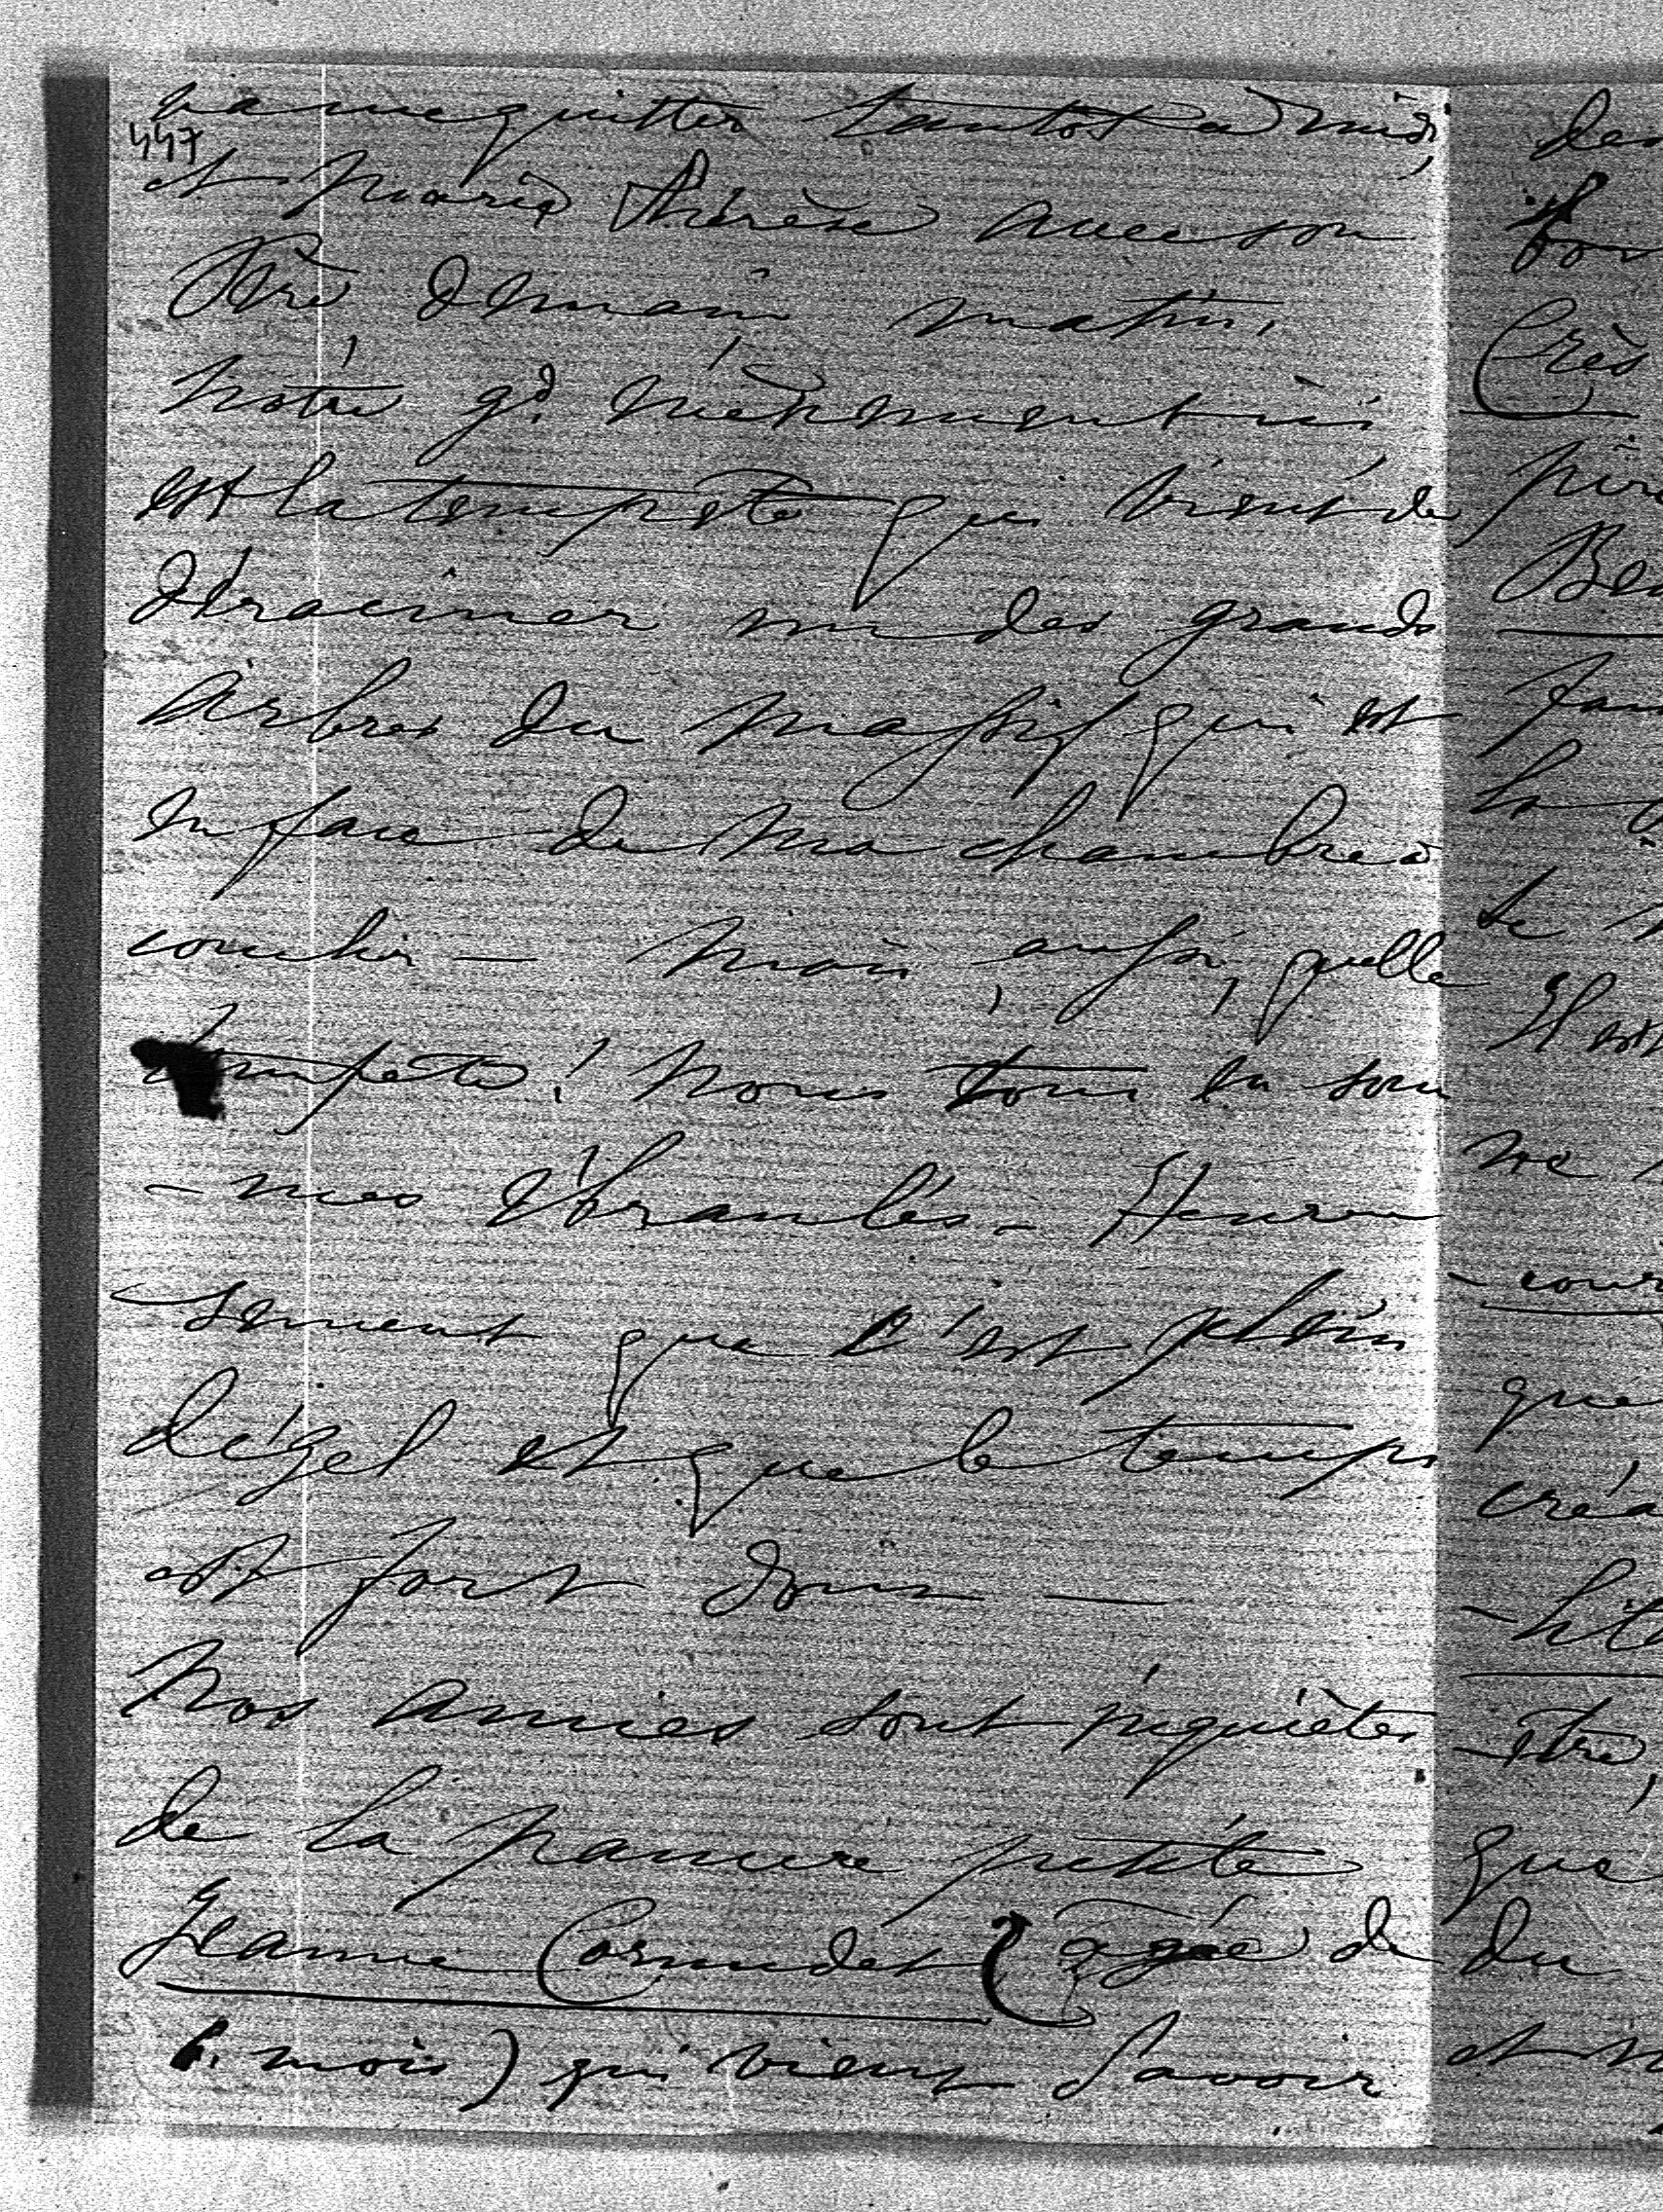 va me quitter tantôt à midi,
447
et Marie Thérèse avec son
Père, demain matin.
Notre gd. événement ici
est la tempête qui vient de
déraciner un des grands
arbres du massif qui est
en face de ma chambre à
coucher — Mais, aussi, quelle
tempête! Nous tous en som
- mes ébranlés. Heureu
- sement que c'est plein
dégel et que le temps
est fort doux —
Nos amies sont inquiètes
de la pauvre petite
Jeanne Cornudet (âgée de
6. mois) qui vient d'avoir
des
Très
Il est
ne
que
- être,
que
du